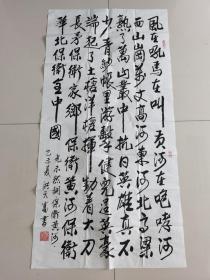 風在吼馬在叫黄河在咆哮河
西山崗萬丈高河東河北高粱
熟了萬山叢中抗日英雄真不
少青紗帳裏游擊健兒逞英豪
端起了土槍洋槍揮動着大刀
長矛保衛家鄉保衛黄河保衛
華北保衛全中國
光未然詞保衛黄河
乙未夏 書